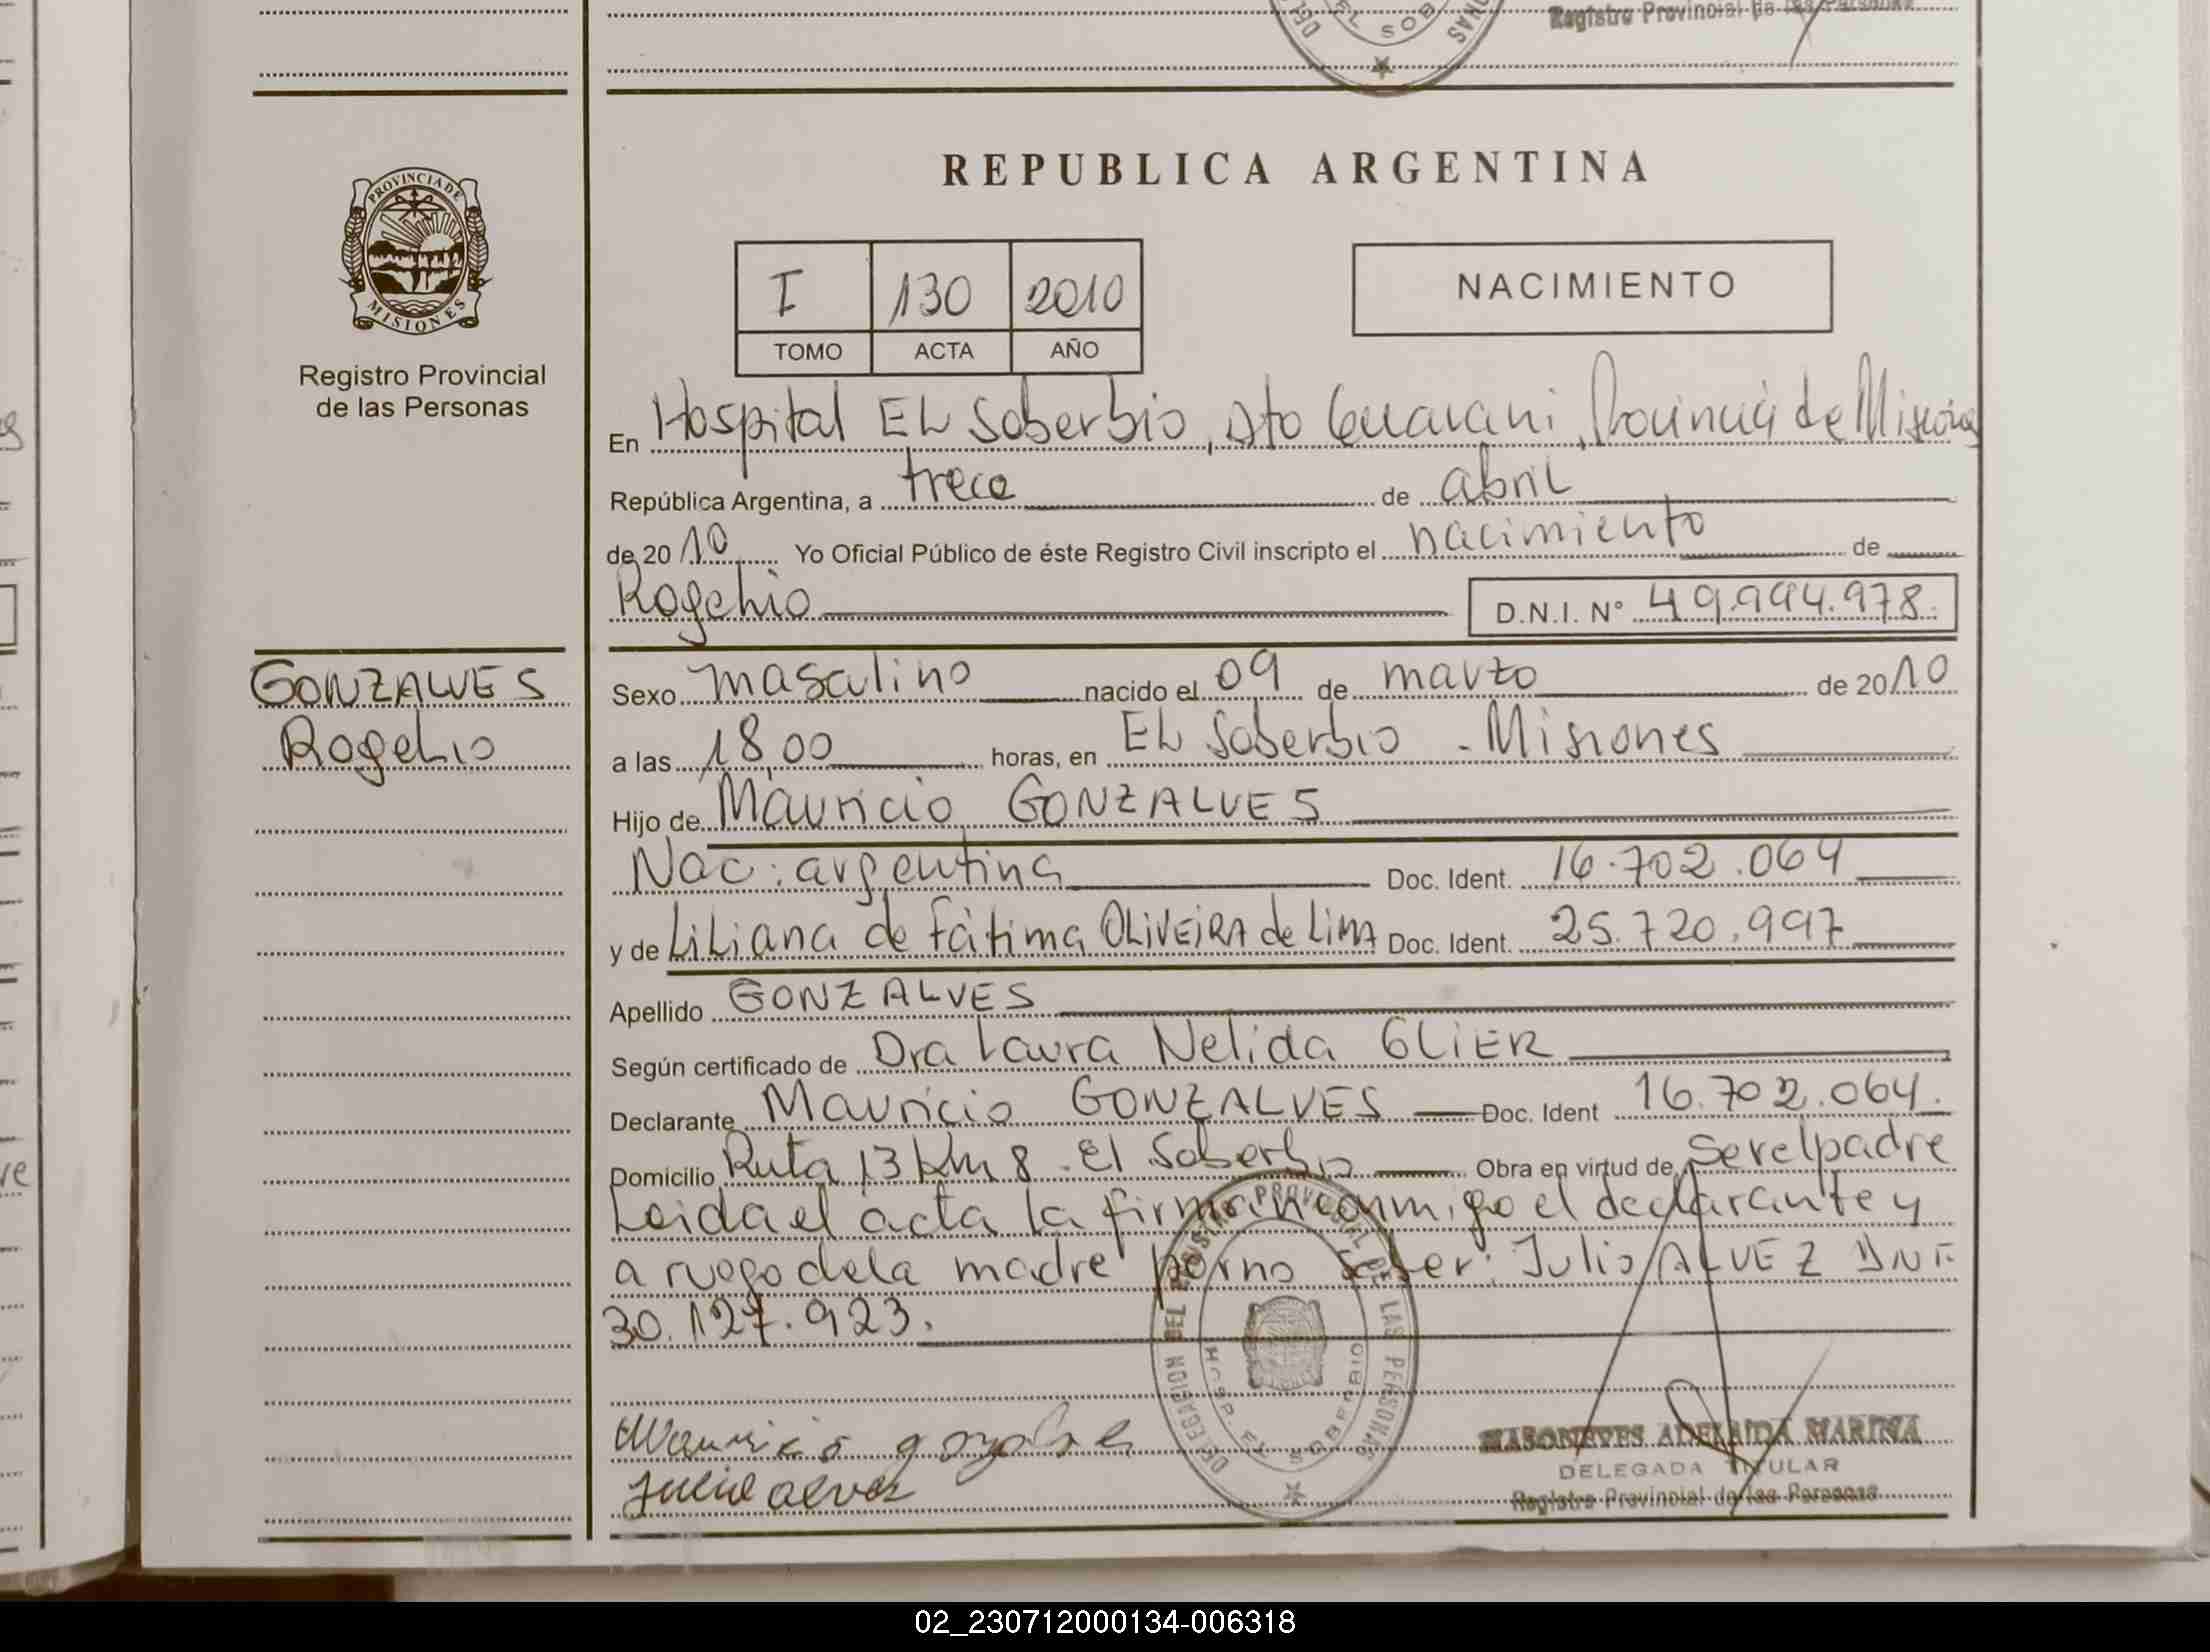 Registro Provincial de las Personas
EL SOB
REPUBLICA ARGENTINA
PROVINCIA DE
MISIONES
Registro Provincial
de las Personas
I 130 2010
TOMO ACTA AÑO
NACIMIENTO
En Hospital EL Soberbio, Dto Guarani, Provincia de Misiones
República Argentina, a trece de abril
de 2010 Yo Oficial Público de éste Registro Civil inscripto el nacimiento de
Rogelio D.N.I. Nº 49.994.978.
GONZALVES
Rogelio
Sexo masculino nacido el 09 de marzo de 2010
a las 18,00 horas, en EL Soberbio - Misiones
Hijo de Mauricio GONZALVES
Nac: argentina Doc. Ident. 16.702.064
y de Liliana de Fátima OLIVEIRA de LIMA Doc. Ident. 25.720.997
Apellido GONZALVES
Según certificado de Dra Laura Nelida GLIER
Declarante Mauricio GONZALVES Doc. Ident 16.702.064.
Domicilio Ruta 13 Km 8 - El Soberbio Obra en virtud de ser el padre
Leida el acta la firman conmigo el declarante y
a ruego de la madre por no saber: Julio ALVEZ DNI
30.127.923.
DELEGACION DEL REGISTRO PROVINCIAL DE LAS PERSONAS
HOSP. EL SOBERBIO
Mauricio gonzalves
Julio alves
MASONEVES ADELAIDA MARINA
DELEGADA TITULAR
Registro Provincial de las Personas
02_230712000134-006318